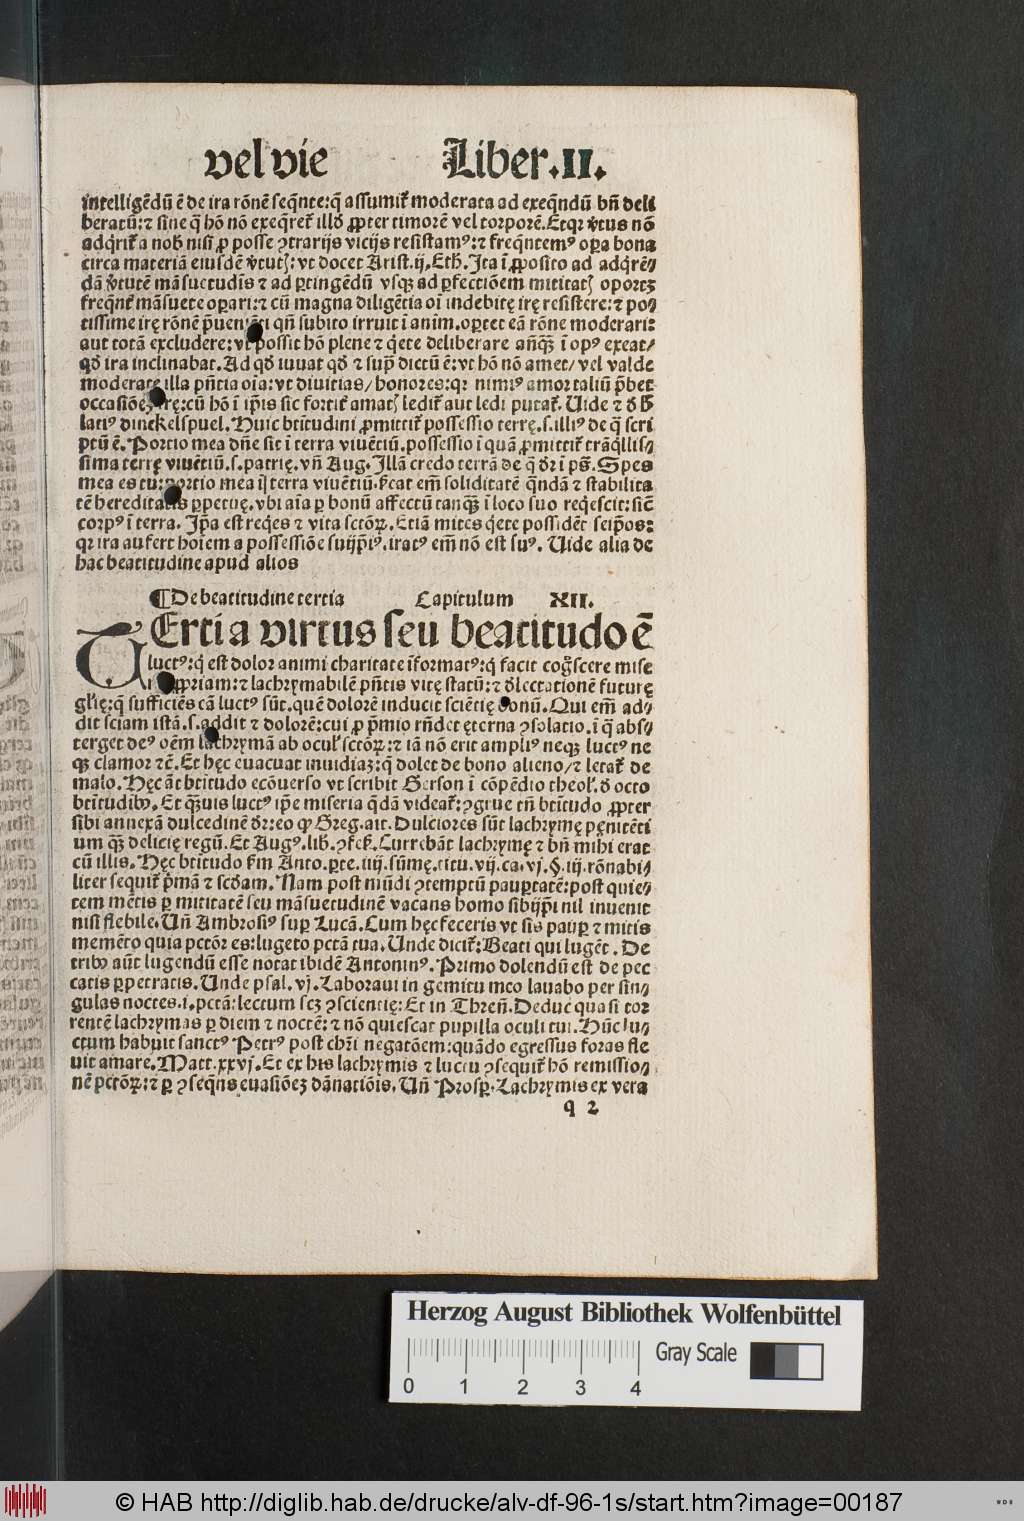 vel vie Liber .II.
intelligēdū ē de ira rōnē seq̄nte: q̄ assumit᷑ moderata ad exeq̄ndū bn̄ deli
beratū: ⁊ sine q̄ hō nō exeq̄ret᷑ illđ ꝓpter timorē vel torporē. Etqꝛ v̄tus nō
adq̇rit᷑ a nob̄ nisi ꝓ posse ꝯtrarijs vicijs resistamꝰ: ⁊ freq̄ntemꝰ oꝑa bona
circa materiā eiusdē v̄tut): vt docet Arist. ij. Eth̄. Ita ī ꝓposito ad adq̇rē⸗
dā v̄tutē māsuetudīs ⁊ ad ꝑtingēdū vsqꝫ ad ꝑfectiōem mititat) oportꝫ
freq̄nt᷑ māsuete oꝑari: ⁊ cū magna diligētia oī indebitę irę resistere: ⁊ po⸗
tissime irę rōnē p̄ueniēti qn̄ subito irruit ī anim. oꝑtet eā rōne moderari:
aut totā excludere: vt possit hō plene ⁊ q̇ete deliberare añqꝫ̄ ī opꝰ exeat/
qđ ira inclinabat. Ad qđ iuuat qđ ⁊ sup̄ dictū ē: vt hō nō amet/ vel valde
moderate illa pn̄tia oīa: vt diuitias/ honores: qꝛ nimiꝰ amor taliū p̄bet
occasiōeꝫ irę: cū hō ī ip̄is sic fortit᷑ amat) ledit᷑ aut ledi putat᷑. Uide ⁊ đ h̄
latiꝰ dinckelspuel. Huic btītudini ꝓmittit᷑ possessio terrę. s. illiꝰ de q̄ scri
ptū ē. Portio mea dn̄e sit ī terra viuētiū. possessio ī quā ꝓmittit᷑ trāq̇llis⸗
sima terrę viuētiū. s. patrię. vn̄ Aug. Illā credo terrā de q̄ đr ī ps̄. Spes
mea es tu: portio mea ī terra viuētiū. s̄icat em̄ soliditatē q̄ndā ⁊ stabilita
tē hereditatis ꝑpetuę. vbi aīa ꝑ bonū affectū tanqꝫ̄ ī loco suo req̇escit: sic̄
corpꝰ ī terra. Ip̄a est req̇es ⁊ vita sctōꝝ. Etiā mites q̇ete possidēt seip̄os:
qꝛ ira aufert hoīem a possessiōe suijp̄iꝰ. iratꝰ em̄ nō est suꝰ. Uide alia de
hac beatitudine apud alios
¶ De beatitudine tertia Capitulum XII.
TErtia virtus seu beatitudo ē
luctꝰ: q̄ est dolor animi charitate īformatꝰ: q̄ facit cog̊scere mise
riā ꝓpriam: ⁊ lachrymabilē pn̄tis vitę statū: ⁊ đlectationē future
gl̄ię: q̄ sufficiēs cā luctꝰ sūt. quē dolorē inducit sciētię donū. Qui em̄ ad⸗
dit sciam istā. s. addit ⁊ dolorē: cui ꝓ p̄mio rn̄det ęterna ꝯsolatio. ī q̄ abs⸗
terget deꝰ oēm lachrymā ab ocul̓ sctōꝝ: ⁊ iā nō erit ampliꝰ neqꝫ luctꝰ ne
qꝫ clamor ⁊c̄. Et hęc euacuat inuidiaꝫ: q̄ dolet de bono alieno/ ⁊ letat᷑ de
malo. Hęc āt btītudo ecōuerso vt scribit Gerson ī cōpēdio theol̓. đ octo
btītudibꝰ. Et qꝫ̄uis luctꝰ ip̄e miseria q̄dā videat᷑: ꝯgrue tn̄ btītudo ꝓpter
sibi annexā dulcedinē đr: eo ꝙ Greg. ait. Dulciores sūt lachrymę pęnitēti
um qꝫ̄ delicię regū. Et Augꝰ. lib̄. ꝯfes̄. Currebāt lachrymę ⁊ bn̄ mihi erat
cū illis. Hęc btītudo s̄m Anto. ꝑte. iiij. sūmę. titu. vij. ca. vj. §. iij. rōnabi⸗
liter sequit᷑ p̄mā ⁊ scđam. Nam post mūdi ꝯtemptū pauꝑtatē: post quie⸗
tem mētis ꝑ mititatē seu māsuetudinē vacans homo sibijp̄i nil inuenit
nisi flebile. Un̄ Ambrosiꝰ suꝑ Lucā. Cum hęc feceris vt sis pauꝑ ⁊ mitis
memēto quia pctōr es: lugeto pctā tua. Unde dicit᷑: Beati qui lugēt. De
tribꝰ aūt lugendū esse notat ibidē Antoninꝰ. Primo dolendū est de pec
catis ꝑpetratis. Unde psal. vj. Laboraui in gemitu meo lauabo per sin⸗
gulas noctes. i. pctā: lectum scꝫ ꝯscientię: Et in Thren̄. Deduc quasi tor
rentē lachrymas ꝑ diem ⁊ noctē: ⁊ nō quiescat pupilla oculi tui. Hūc lu⸗
ctum habuit sanctꝰ Petrꝰ post chr̄i negatōem: quādo egressus foras fle
uit amare. Matt. xxvj. Et ex his lachrymis ⁊ luctu ꝯsequit᷑ hō remissio⸗
nē pctōꝝ: ⁊ ꝑ ꝯseq̄ns euasiōeꝫ dānatiōis. Un̄ Prosꝑ. Lachrymis ex vera
q 2
Herzog August Bibliothek Wolfenbüttel
Gray Scale
0 1 2 3 4
© HAB http://diglib.hab.de/drucke/alv-df-96-1s/start.htm?image=00187